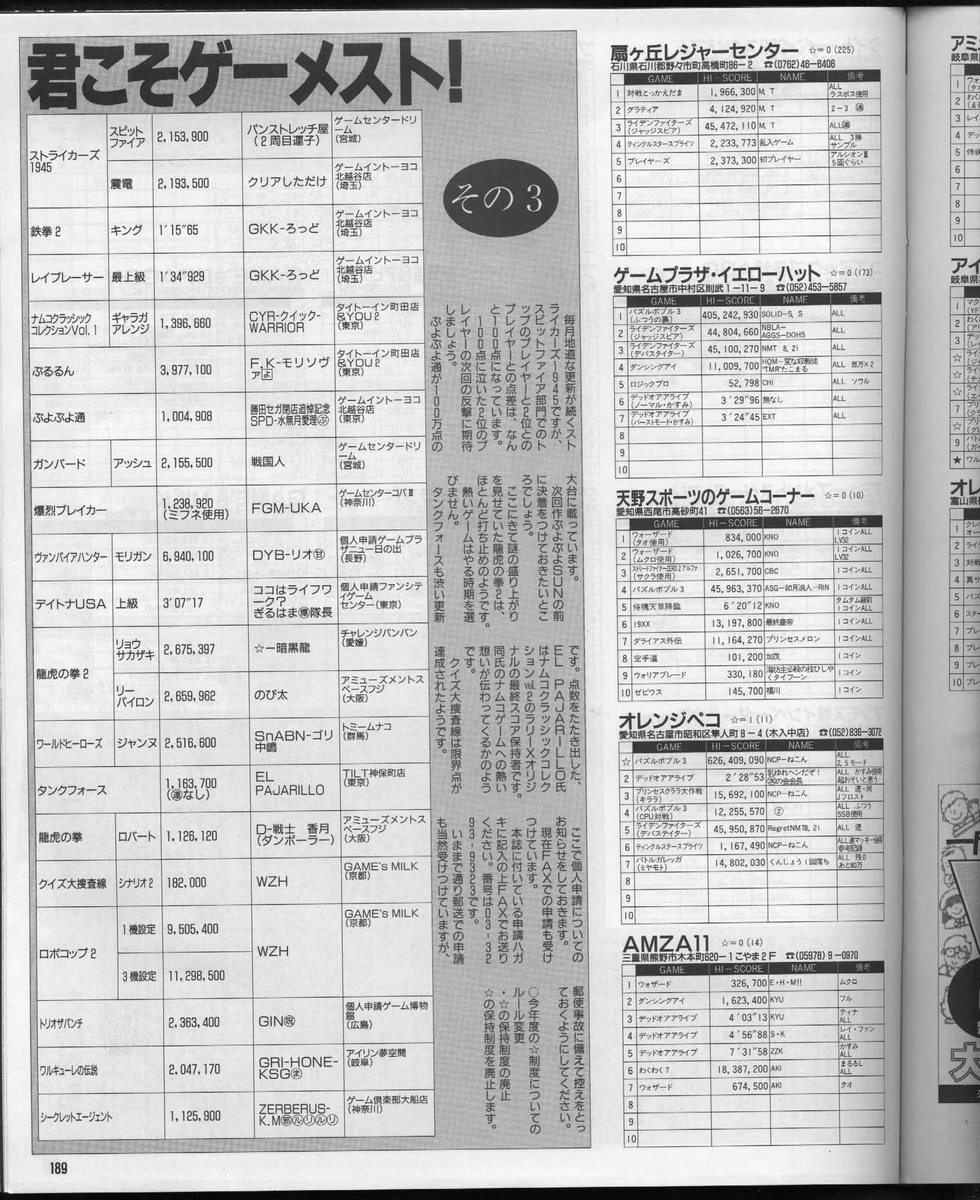 君こそゲーメスト!
その3
ストライカーズ1945 スピットファイア 2,153,900 パンストレッチ屋(2周目運子) ゲームセンタードリーム(宮城)
震電 2,193,500 クリアしただけ ゲームイントーヨコ北越谷店(埼玉)
鉄拳2 キング 1'15"65 GKK-ろっど ゲームイントーヨコ北越谷店(埼玉)
レイブレーサー 最上級 1'34"929 GKK-ろっど ゲームイントーヨコ北越谷店(埼玉)
ナムコクラシックコレクションVol.1 ギャラガアレンジ 1,396,660 CYR-クイック-WARRIOR タイトーイン町田店&YOU2(東京)
ぷるるん 3,977,100 F.K-モリソヴァ タイトーイン町田店&YOU2(東京)
ぷよぷよ通 1,004,908 勝田セガ閉店追悼記念SPD-水無月愛理 ゲームイントーヨコ北越谷店(東京)
ガンバード アッシュ 2,155,500 戦国人 ゲームセンタードリーム(宮城)
爆烈ブレイカー 1,238,920(ミフネ使用) FGM-UKA ゲームセンターコパⅢ(神奈川)
ヴァンパイアハンター モリガン 6,940,100 DYB-リオ㊐ 個人申請ゲームプラザニュー日の出(長野)
デイトナUSA 上級 3'07"17 ココはライフワーク?ぎるはま隊長 個人申請ファンシティゲームセンター(東京)
龍虎の拳2 リョウサカザキ 2,675,397 ☆一暗黒龍 チャレンジバンバン(愛媛)
リーパイロン 2,659,962 のび太 アミューズメントスペースフジ(大阪)
ワールドヒーローズ ジャンヌ 2,516,600 SnABN-ゴリ中嶋 トミームナコ(群馬)
タンクフォース 1,163,700(連なし) EL PAJARILLO TILT神保町店(東京)
龍虎の拳 ロバート 1,126,120 D-戦士 香月(ダンボーラー) アミューズメントスペースフジ(大阪)
クイズ大捜査線 シナリオ2 182,000 WZH GAME's MILK(京都)
ロボコップ2 1機設定 9,505,400 WZH GAME's MILK(京都)
3機設定 11,298,500
トリオザパンチ 2,363,400 GIN 個人申請ゲーム博物館(広島)
ワルキューレの伝説 2,047,170 GRI-HONE-KSG アイリン夢空間(岐阜)
シークレットエージェント 1,125,900 ZERBERUS-K.M ゲーム倶楽部大船店(神奈川)
毎月地道な更新が続くスト
ライカーズ1945ですが、
スピットファイア部門でのト
ップのプレイヤーと2位との
プレイヤーとの点差は、なん
と100点になっています。
100点に泣いた2位のプ
レイヤーの次回の反撃に期待
しましょう。
ぷよぷよ通が100万点の
大台に載っています。
次回作ぷよぷよSUNの前
に決着をつけておきたいとこ
ろでしょう。
ここにきて謎の盛り上がり
を見せていた龍虎の拳2は、
ほとんど打ち止めのようです。
熱いゲームはやる時期を選
びません。
タンクフォースも渋い更新
です。点数をたたき出した、
EL PAJARILLO氏
はナムコクラッシックコレク
ションvol.2のラリーXオリジ
ナルの最終スコア保持者です。
同氏のナムコゲームへの熱い
想いが伝わってくるかのよう
です。
クイズ大捜査線は限界点が
達成されたようです。
ここで個人申請についての
お知らせをしておきます。
現在FAXでの申請も受け
つけています。
本誌に付いている申請ハガ
キに記入の上FAXでお送り
ください。番号は03-32
93-9323です。
いままで通り郵送での申請
も当然受けつけていますが、
郵便事故に備えて控えをとっ
ておくようにしてください。
○今年度の☆制度についての
ルール変更
・☆の保持制度の廃止
☆の保持制度を廃止します。
189
扇ヶ丘レジャーセンター ☆=0(225)
石川県石川郡野々市町高橋町86-2 ☎(0762)46-6406
GAME HI-SCORE NAME 備考
1 対戦とっかえだま 1,966,300 M.T ALL ラスボス使用
2 グラティア 4,124,920 M.T 2-3
3 ライデンファイターズ(ジャッジスピア) 45,472,110 M.T ALL
4 ティンクルスタースプライツ 2,233,773 乱入ゲーム ALL 3勝サンプル
5 ブレイザーズ 2,373,300 初プレイヤー アルシオンⅢ5回ぐらい
6
7
8
9
10
ゲームプラザ・イエローハット ☆=0(173)
愛知県名古屋市中村区則武1-11-9 ☎(052)453-5857
GAME HI-SCORE NAME 備考
1 パズルボブル3(ふつうの裏) 405,242,930 SOLID-S.S ALL
2 ライデンファイターズ(ジャッジスピア) 44,804,660 NBLA-AGGS-DOHS ALL
3 ライデンファイターズ(デバステイター) 45,100,270 NMT 8.2i ALL
4 ダンシングアイ 11,009,700 HOM-変な収穫祭"TMR"たこまる ALL 百万×2
5 ロジックプロ 52,798 CHi ALL ソウル
6 デッドオアアライブ(ノーマル・かすみ) 3'29"96 無なし ALL
7 デッドオアアライブ(バーストモード・かすみ) 3'24"45 EXT ALL
8
9
10
天野スポーツのゲームコーナー ☆=0(10)
愛知県西尾市高砂町41 ☎(0563)56-2670
GAME HI-SCORE NAME 備考
1 ウォーザード(タオ使用) 834,000 KNO 1コインALL LV32
2 ウォーザード(ムクロ使用) 1,026,700 KNO 1コインALL LV32
3 ストリートファイターZERO2アルファ(サクラ使用) 2,651,700 CBC 1コインALL
4 パズルボブル3 45,963,370 ASG-如月浪人-RIN 1コインALL
5 侍魂天草降臨 6'20"12 KNO タムタム羅刹1コインALL
6 19XX 13,197,800 最終皇帝 1コインALL
7 ダライアス外伝 11,164,270 プリンセスメロン 1コインALL
8 空手道 101,200 加茂 1コイン
9 ウォリアブレード 330,180 1コイン
10 ゼビウス 145,700 福川 1コイン
オレンジペコ ☆=1(11)
愛知県名古屋市昭和区隼人町8-4(木入中店) ☎(052)836-3072
GAME HI-SCORE NAME 備考
☆ パズルボブル3 626,409,090 NCP-ねこん ALL 2,5モード
2 デッドオアアライブ 2'28"53 ALL かすみ使用
3 プリンセスクララ大作戦(キララ) 15,692,100 NCP-ねこん ALL Jフロスト
4 パズルボブル3(CPU対戦) 12,255,570 Ⓩ ALL ふつう SSB使用
5 ライデンファイターズ(デバステイター) 45,950,870 RegretNMT8.2i ALL 連
6 ティンクルスタースプライツ 1,167,490 NCP-ねこん 参考記録
7 バトルガレッガ(ミヤモト) 14,802,030 くんしょう1回落ち ALL 残0 あと80万
8
9
10
AMZA11 ☆=0(14)
三重県熊野市木本町620-1こやま2F ☎(05978)9-0970
GAME HI-SCORE NAME 備考
1 ウォザード 326,700 E・H・M!! ムクロ
2 ダンシングアイ 1,623,400 KYU フル
3 デッドオアアライブ 4'03"13 KYU ティナALL
4 デッドオアアライブ 4'56"88 S・K レイ・ファンALL
5 デッドオアアライブ 7'31"58 ZZK かすみALL
6 わくわく7 18,387,200 AKI まるるしALL
7 ウォザード 674,500 AKI タオ
8
9
10